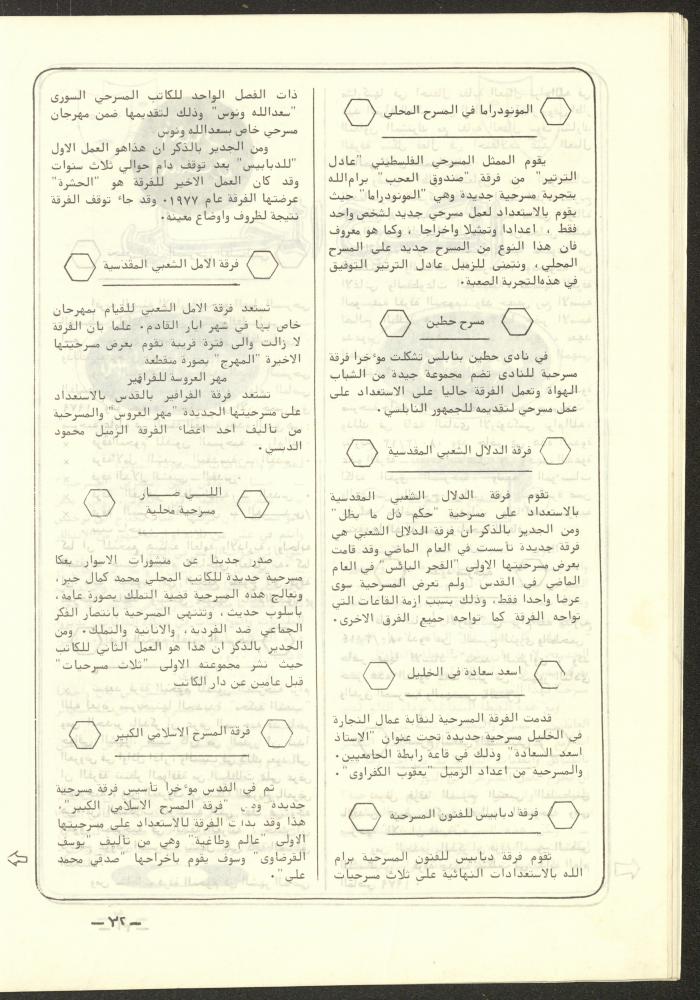 المونودراما في المسرح المحلي
يقوم الممثل المسرحي الفلسطيني "عادل
الترتير" من فرقة "صندوق العجب" برام‌الله
بتجربة مسرحية جديدة وهي "المونودراما" حيث
يقوم بالاستعداد لعمل مسرحي جديد لشخص واحد
فقط ، اعدادا وتمثيلا واخراجا ، وكما هو معروف
فان هذا النوع من المسرح جديد على المسرح
المحلي، ونتمنى للزميل عادل الترتير التوفيق
في هذه‌التجربة الصعبة.
مسرح حطين
في نادى حطين بنابلس تشكلت موءخرا فرقة
مسرحية للنادى تضم مجموعة جيدة من الشباب
الهواة وتعمل الفرقة حاليا على الاستعداد على
عمل مسرحي لتقديمه للجمهور النابلسي.
فرقة الدلال الشعبي المقدسية
تقوم فرقة الدلال الشعبي المقدسية
بالاستعداد على مسرحية "حكم ذل ما بظل"
ومن الجدير بالذكر ان فرقة الدلال الشعبي هي
فرقة جديدة تأسست في العام الماضي وقد قامت
بعرض مسرحيتها الاولى "الفجر البائس" في العام
الماضي في القدس ولم تعرض المسرحية سوى
عرضا واحدا فقط، وذلك بسبب ازمة القاعات التي
تواجه الفرقة كما تواجه جميع الفرق الاخرى.
اسعد سعادة في الخليل
قدمت الفرقة المسرحية لنقابة عمال النجارة
في الخليل مسرحية جديدة تحت عنوان "الاستاذ
اسعد السعادة" وذلك في قاعة رابطة الجامعيين.
والمسرحية من اعداد الزميل "يعقوب الكفراوى".
فرقة دبابيس للفنون المسرحية
تقوم فرقة دبابيس للفنون المسرحية برام
الله بالاستعدادات النهائية على ثلاث مسرحيات
ذات الفصل الواحد للكاتب المسرحي السورى
"سعدالله ونوس" وذلك لتقديمها ضمن مهرجان
مسرحي خاص بسعدالله ونوس
ومن الجدير بالذكر ان هذاهو العمل الاول
"للدبابيس" بعد توقف دام حوالي ثلاث سنوات
وقد كان العمل الاخير للفرقة هو "الحشرة"
عرضتها الفرقة عام ١٩٧٧. وقد جاء توقف الفرقة
نتيجة لظروف واوضاع معينة.
فرقة الامل الشعبي المقدسية
تستعد فرقة الامل الشعبي للقيام بمهرجان
خاص بها في شهر ايار القادم. علما بان الفرقة
لا زالت والى فترة قريبة تقوم بعرض مسرحيتها
الاخيرة "المهرج" بصورة متقطعة
مهر العروسة للفرافير
تستعد فرقة الفرافير بالقدس بالاستعداد
على مسرحيتها الجديدة "مهر العروس" والمسرحية
من تأليف أحد اعضاء الفرقة الزميل محمود
الدبسي.
اللـــي صـــار
مسرحية محلية
صدر حديثا عن منشورات الاسوار بعكا
مسرحية جديدة للكاتب المحلي محمد كمال جبر،
وتعالج هذه المسرحية قضية التملك بصورة عامة،
بأسلوب حديث، وتنتهي المسرحية بانتصار الفكر
الجماعي ضد الفردية، والانانية والتملك. ومن
الجدير بالذكر ان هذا هو العمل الثاني للكاتب
حيث نشر مجموعته الاولى "ثلاث مسرحيات"
قبل عامين عن دار الكاتب
فرقة المسرح الاسلامي الكبير
تم في القدس موءخرا تأسيس فرقة مسرحية
جديدة "فرقة المسرح الاسلامي الكبير".
هذا وقد بدات الفرقة بالاستعداد على مسرحيتها
الاولى "عالم وطاغية" وهي من تأليف "يوسف
القرضاوى" وسوف يقوم باخراجها "صدقي محمد
علي".
– ٣٢ –